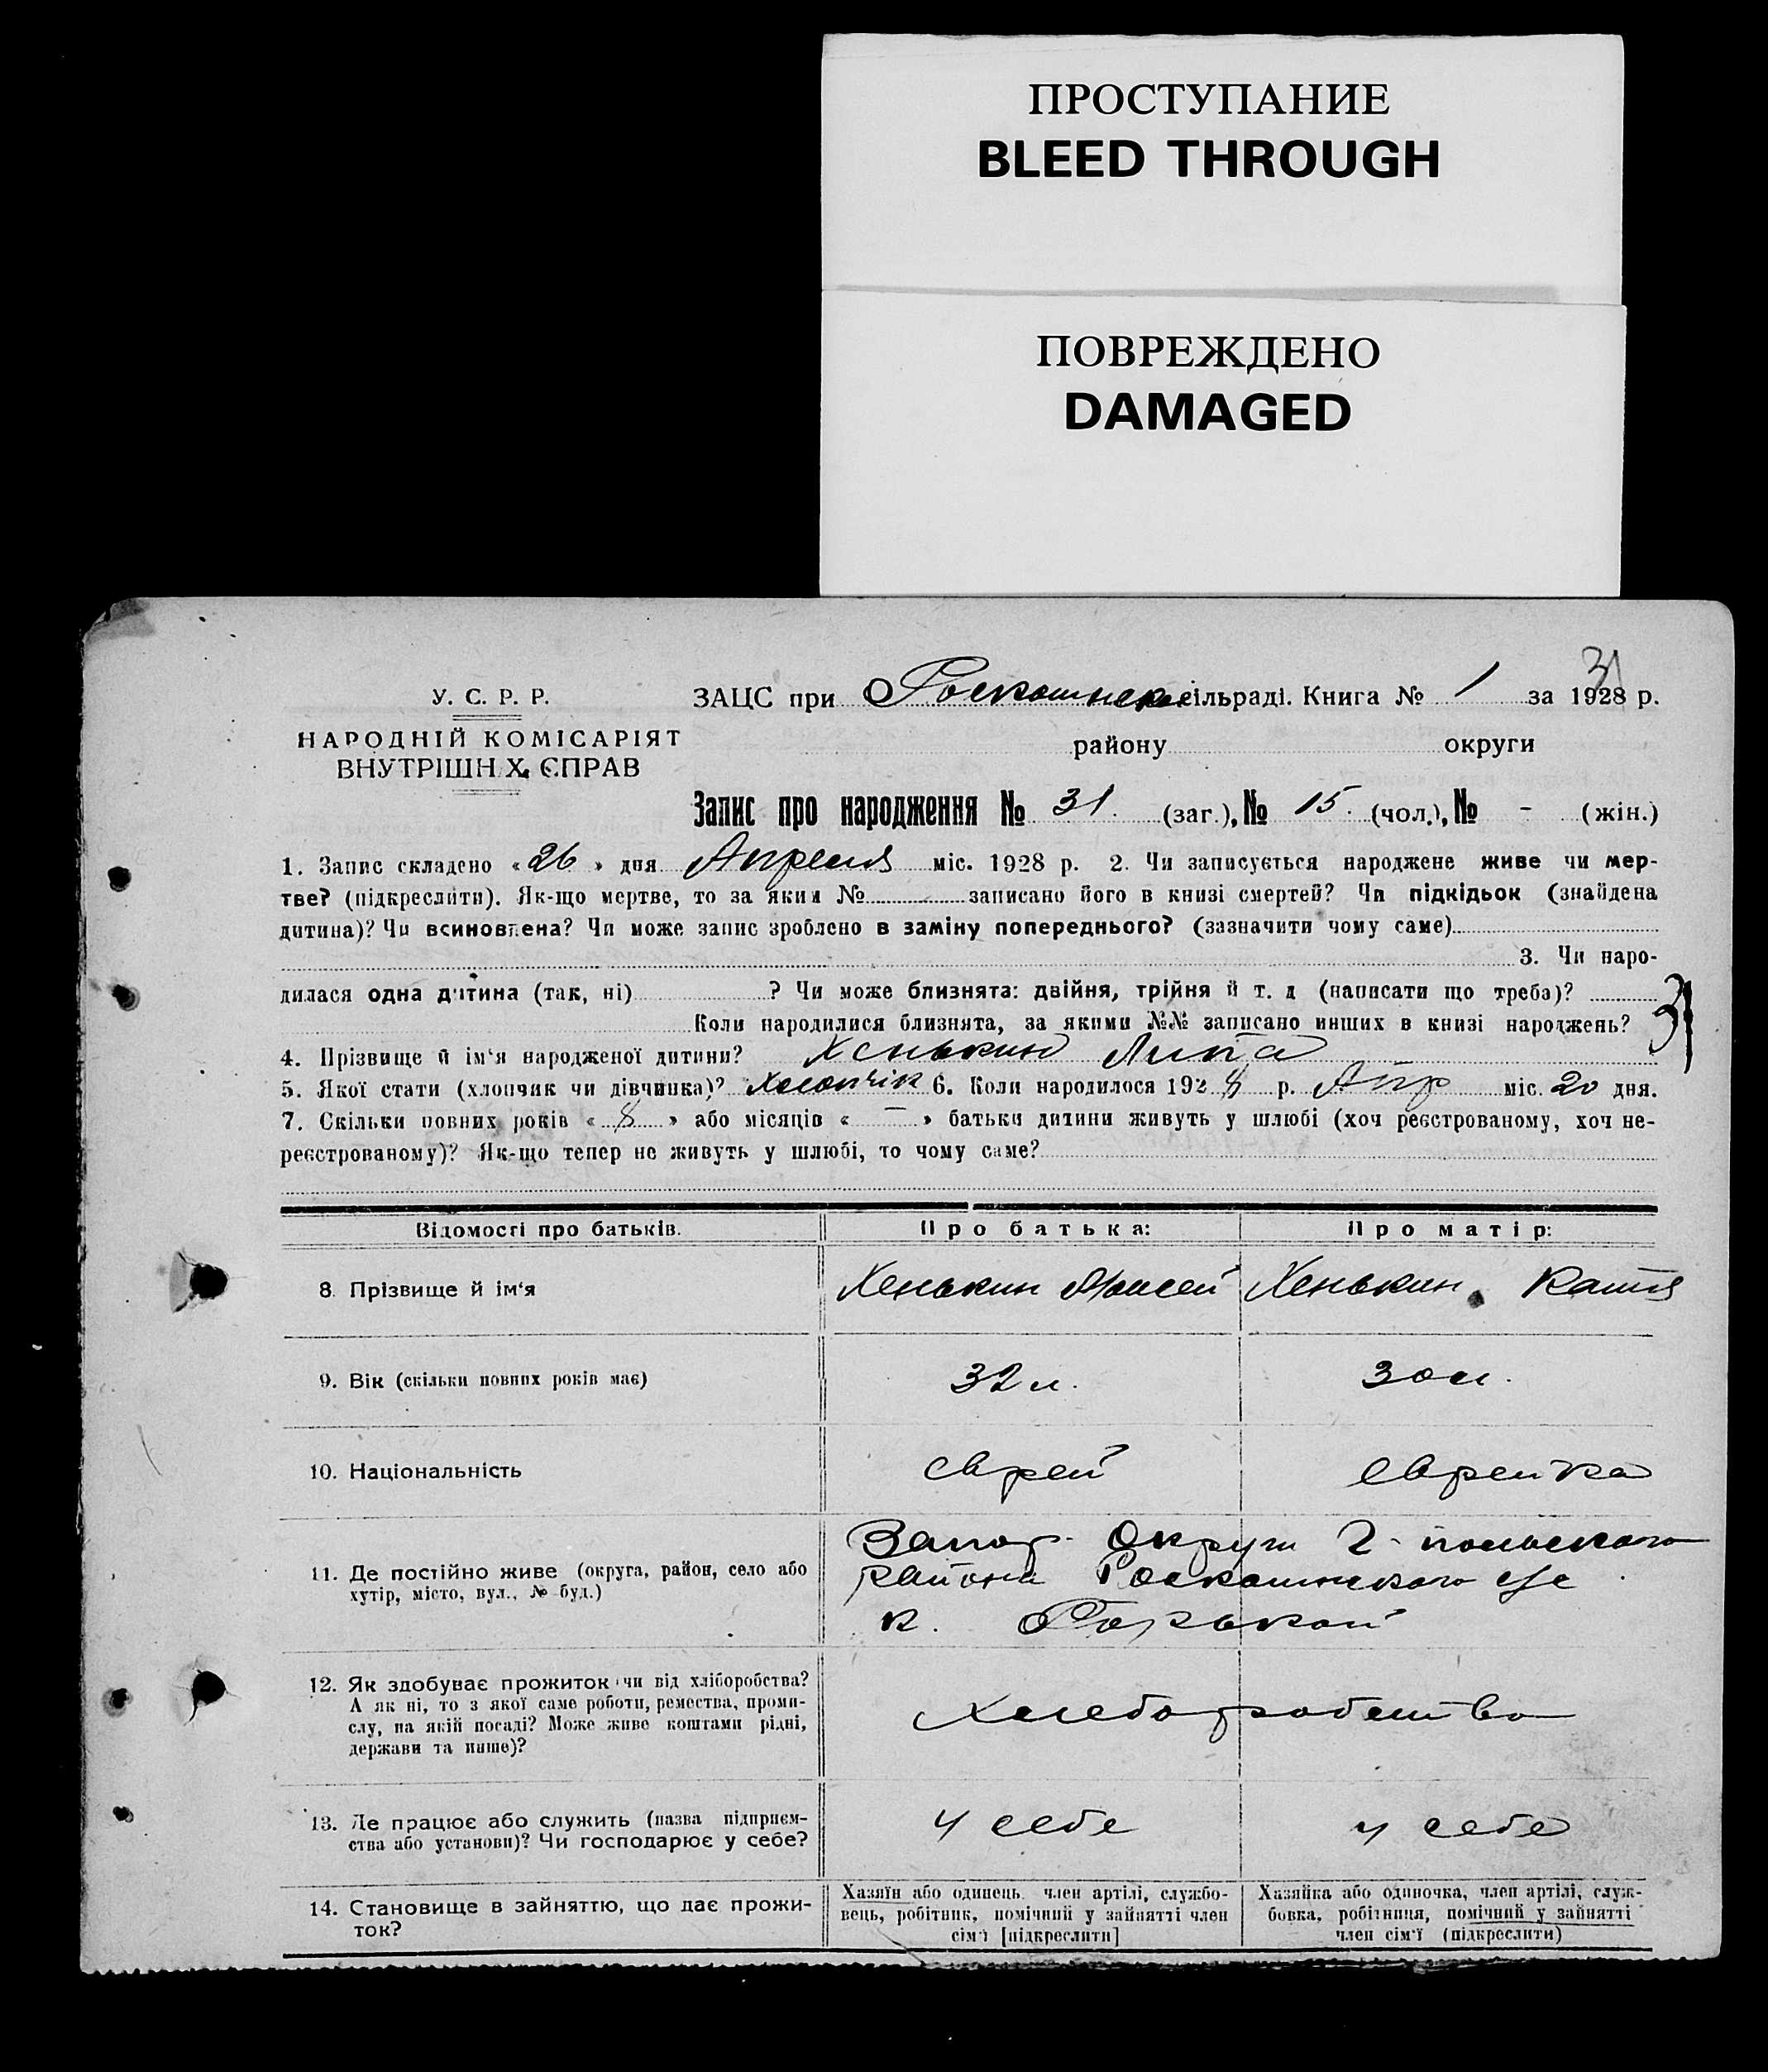 ПРОСТУПАНИЕ
BLEED THROUGH
ПОВРЕЖДЕНО
DAMAGED
31
У. С. Р. Р.
НАРОДНІЙ КОМІСАРІЯТ
ВНУТРІШН.Х. СПРАВ
ЗАЦС при Роскошнск сільраді. Книга № 1 за 1928 р.
району округи
Запис про народження № 31. (заг.), № 15. (чол.), № - (жін.)
1. Запис складено «26» дня Апреля міс. 1928 р. 2. Чи записується народжене живе чи мер-
тве? (підкреслити). Як-що мертве, то за яким № записано його в книзі смертей? Чи підкідьок (знайдена
дитина)? Чи всиновлена? Чи може запис зроблено в заміну попереднього? (зазначити чому саме)
3. Чи наро-
дилася одна дитина (так, ні) ? Чи може близнята: двійня, трійня й т. д (написати що треба)?
31
Коли народилися близнята, за якими №№ записано инших в книзі народжень?
4. Прізвище й ім'я народженої дитини? Хенькин Липа
5. Якої стати (хлопчик чи дівчинка)? Хлопчік 6. Коли народилося 1928 р. Апр міс. 20 дня.
7. Скільки повних років «8» або місяців «—» батьки дитини живуть у шлюбі (хоч реєстрованому, хоч не-
реєстрованому)? Як-що тепер не живуть у шлюбі, то чому саме?
Відомості про батьків. Про батька: Про матір:
8. Прізвище й ім'я Хенькин Моисей Хенькин. Катя
9. Вік (скільки повних років має) 32 л. 30 л.
10. Національність еврей еврейка
11. Де постійно живе (округа, район, село або
хутір, місто, вул., № буд.)
Запор. Округи 2-польского
района Роскошнского с/с
к. Горькой
12. Як здобуває прожиток чи від хліборобства?
А як ні, то з якої саме роботи, ремества, проми-
слу, на якій посаді? Може живе коштами рідні,
держави та инше)?
Хлебопробство
13. Де працює або служить (назва підприєм-
ства або установи)? Чи господарює у себе?
у себе у себе
14. Становище в зайняттю, що дає прожи-
ток?
Хазяїн або одинець, член артілі, службо-
вець, робітник, помічний у зайнятті член
сім'ї [підкреслити]
Хазяйка або одиночка, член артілі, служ-
бовка, робітниця, помічний у зайнятті
член сім'ї (підкреслити)